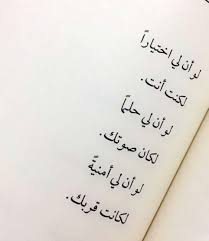 لو أن لي اختياراً
لكنت أنت.
لو أن لي حلماً
لكان صوتك.
لو أن لي أمنيةً
لكانت قربك.